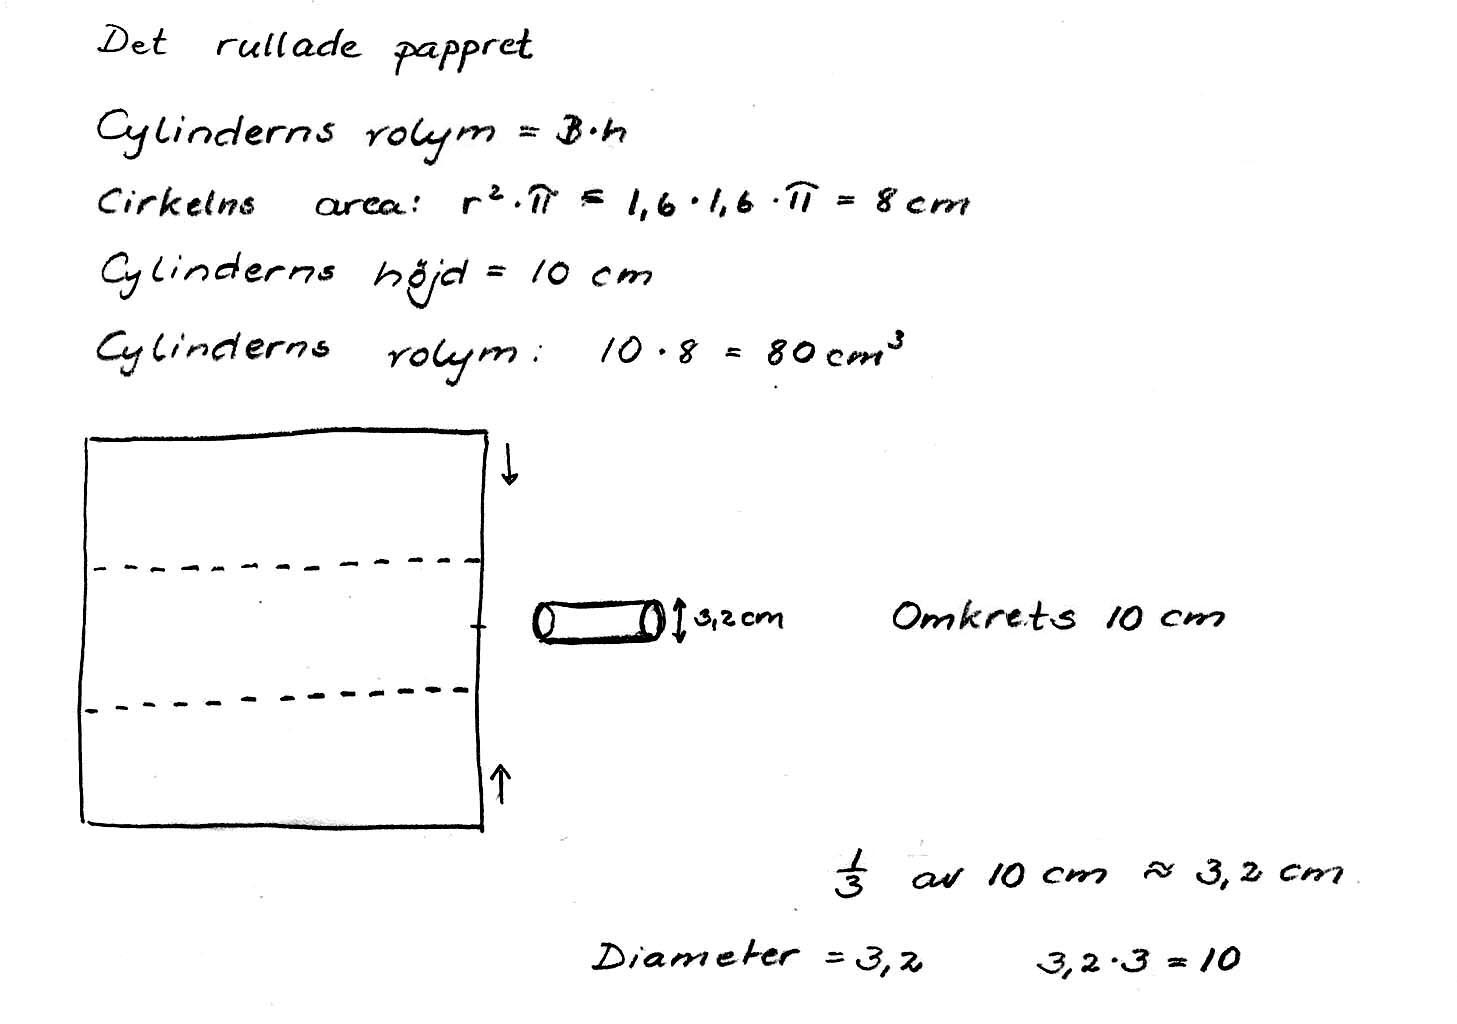 Det rullade pappret
Cylinderns rolym = B·h
Cirkelns area: r²·π = 1,6·1,6·π = 8 cm
Cylinderns höjd = 10 cm
Cylinderns rolym: 10·8 = 80 cm³
3,2 cm Omkrets 10 cm
1/3 av 10 cm ≈ 3,2 cm
Diameter = 3,2 3,2·3 = 10